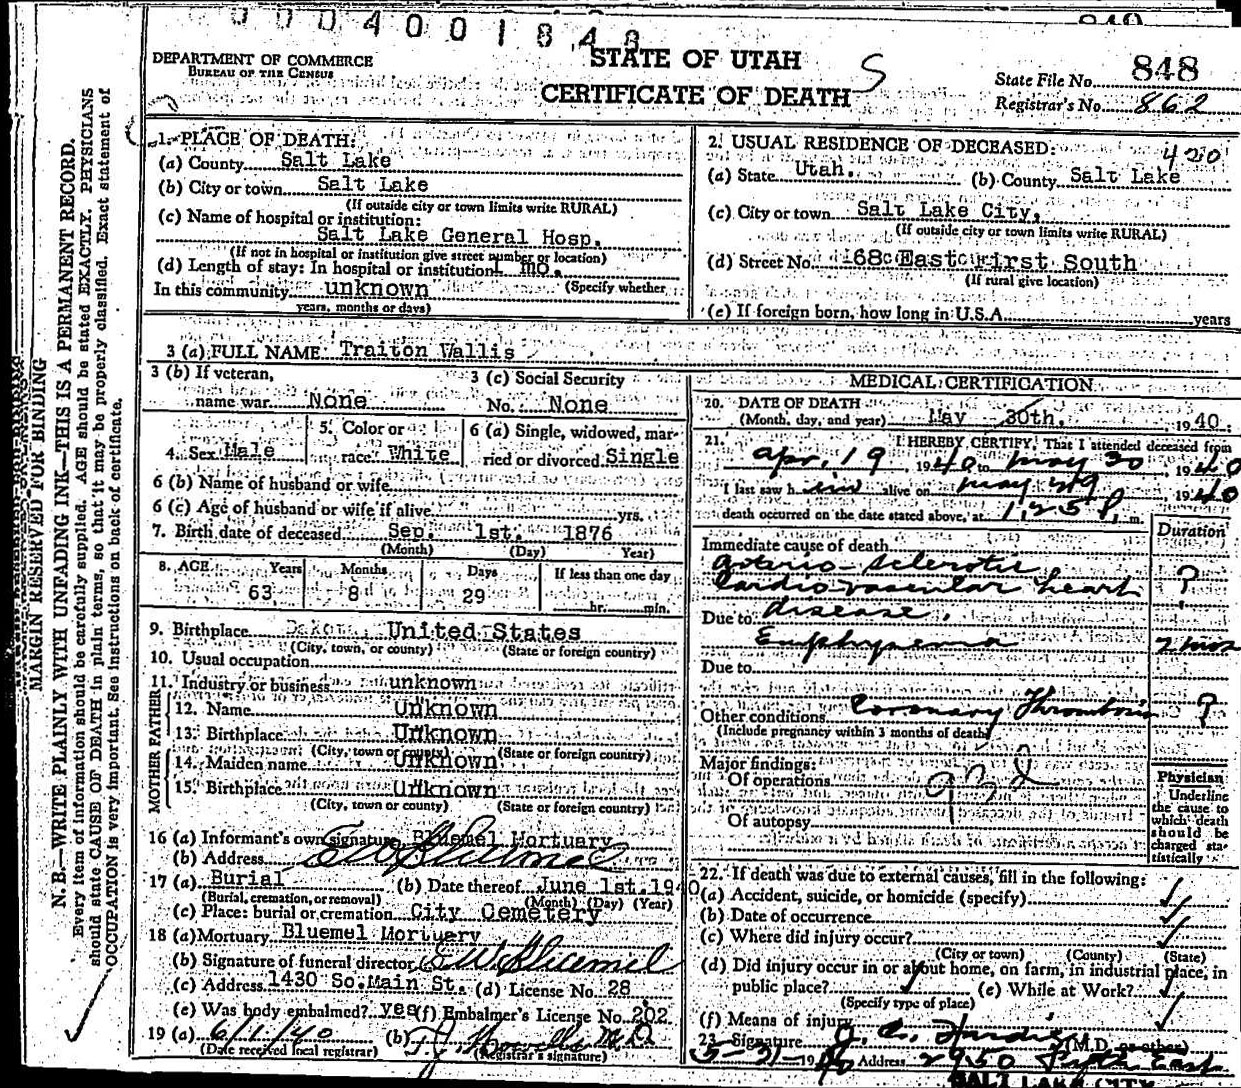 0004001848
STATE OF UTAH
CERTIFICATE OF DEATH
DEPARTMENT OF COMMERCE
BUREAU OF THE CENSUS
State File No. 848
Registrar's No. 862
MARGIN RESERVED FOR BINDING
N. B.—WRITE PLAINLY WITH UNFADING INK—THIS IS A PERMANENT RECORD.
Every item of information should be carefully supplied. AGE should be stated EXACTLY. PHYSICIANS
should state CAUSE OF DEATH in plain terms, so that it may be properly classified. Exact statement of
OCCUPATION is very important. See instructions on back of certificate.
1. PLACE OF DEATH:
(a) County Salt Lake
(b) City or town Salt Lake
(If outside city or town limits write RURAL)
(c) Name of hospital or institution:
Salt Lake General Hosp.
(If not in hospital or institution give street number or location)
(d) Length of stay: In hospital or institution 1 mo.
In this community unknown (Specify whether
years, months or days)
2. USUAL RESIDENCE OF DECEASED:
420
(a) State Utah. (b) County Salt Lake
(c) City or town Salt Lake City.
(If outside city or town limits write RURAL)
(d) Street No. 168 East First South
(If rural give location)
(e) If foreign born, how long in U.S.A. years
3 (a) FULL NAME Traiton Wallis
3 (b) If veteran,
name war None
3 (c) Social Security
No. None
4. Sex Male
5. Color or
race White
6 (a) Single, widowed, mar-
ried or divorced Single
6 (b) Name of husband or wife
6 (c) Age of husband or wife if alive yrs.
7. Birth date of deceased Sep. 1st. 1876
(Month) (Day) Year)
8. AGE Years Months Days If less than one day
63 8 29 hr. min.
9. Birthplace Dakota United States
(City, town, or county) (State or foreign country)
10. Usual occupation
11. Industry or business unknown
FATHER
12. Name Unknown
13. Birthplace Unknown
(City, town or county) (State or foreign country)
MOTHER
14. Maiden name Unknown
15. Birthplace Unknown
(City, town or county) (State or foreign country)
16 (a) Informant's own signature Bluemel Mortuary
(b) Address
17 (a) Burial (b) Date thereof June 1st. 1940
(Burial, cremation, or removal) (Month) (Day) (Year)
(c) Place: burial or cremation City Cemetery
18 (a) Mortuary Bluemel Mortuary
(b) Signature of funeral director E W Bluemel
(c) Address 1430 So. Main St. (d) License No. 28
(e) Was body embalmed? yes (f) Embalmer's License No. 202
19 (a) 6/1/40 (b) T. J. Howells M.D
(Date received local registrar) (Registrar's signature)
MEDICAL CERTIFICATION
20. DATE OF DEATH
(Month, day, and year) May 30th. 1940.
21. I HEREBY CERTIFY, That I attended deceased from
Apr. 19, 1940 to May 30, 1940
I last saw him alive on May 29, 1940
death occurred on the date stated above, at 1:25 P. m.
Duration
Immediate cause of death
arterio-sclerotic
cardio-vascular heart ?
disease.
Due to Emphysema 2 mos
Due to
Other conditions Coronary Thrombosis ?
(Include pregnancy within 3 months of death)
Major findings:
Of operations
Of autopsy
Physician
Underline
the cause to
which death
should be
charged sta-
tistically
22. If death was due to external causes, fill in the following:
(a) Accident, suicide, or homicide (specify)
(b) Date of occurrence
(c) Where did injury occur?
(City or town) (County) (State)
(d) Did injury occur in or about home, on farm, in industrial place, in
public place? (e) While at Work?
(Specify type of place)
(f) Means of injury
23. Signature (M.D. or other)
5-31-1940 Address 2950 Fifth East
SALT LAKE CITY